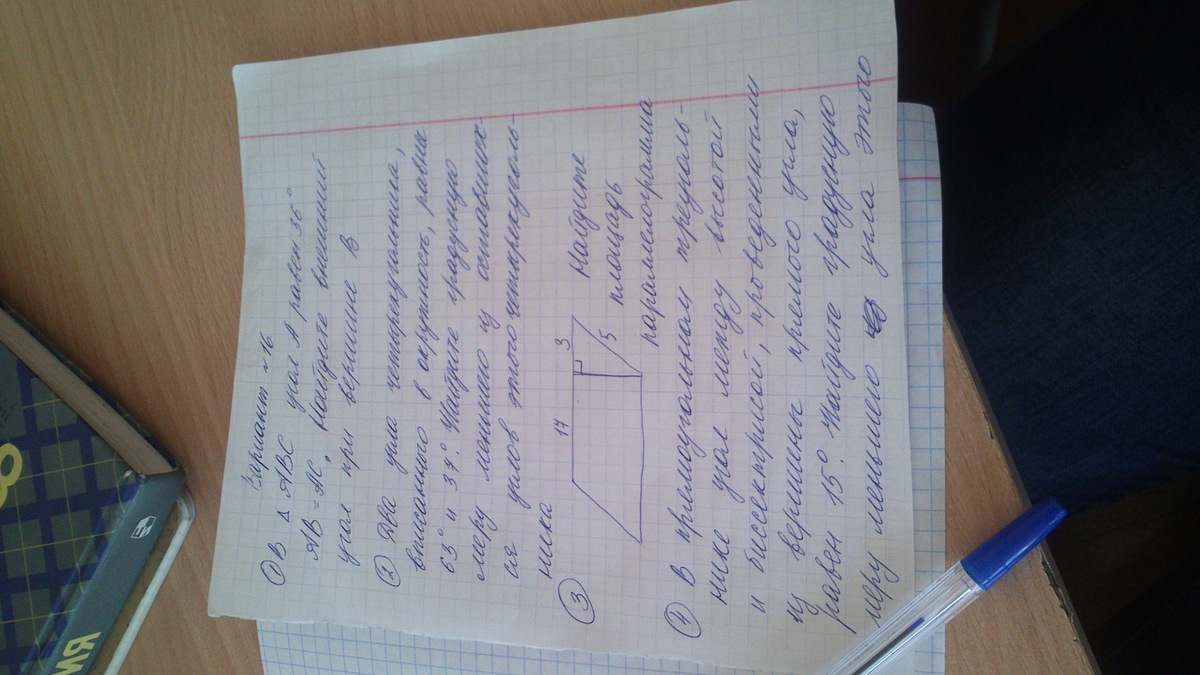 Вариант №16
① В Δ ABC угол A равен 56°
AB = AC, Найдите внешний
угол при вершине B
② Два угла четырехугольника,
вписанного в окружность, равны
63° и 37°. Найдите градусную
меру меньшего из оставших-
ся углов этого четырехуголь-
ника
③ 17 3 5
Найдите
площадь
параллелограмма
④ В прямоугольном треуголь-
нике угол между высотой
и биссектрисой, проведенными
из вершины прямого угла,
равен 15°. Найдите градусную
меру меньшего угла этого
8